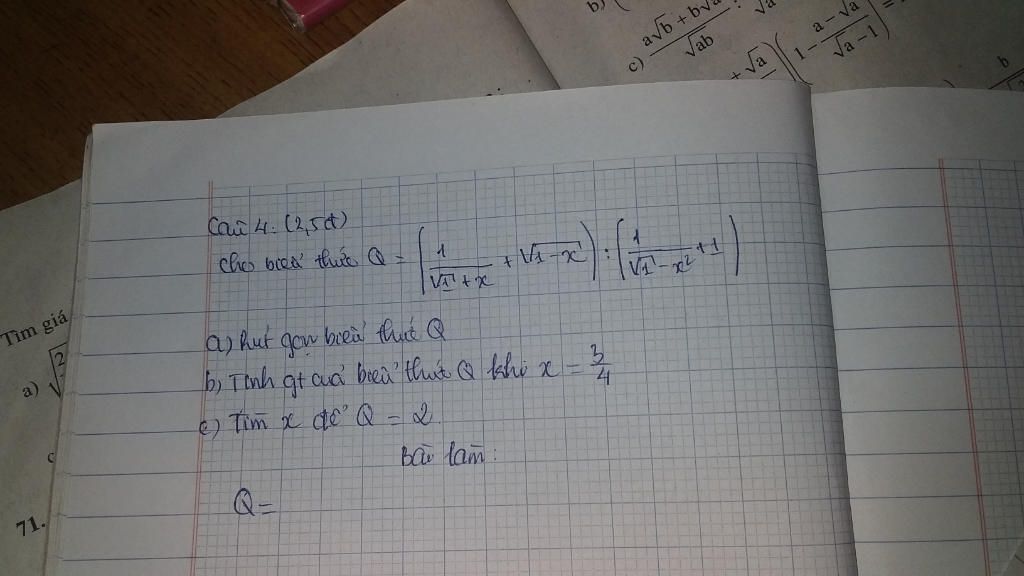 b) (
c) (a√b + b√a)/√ab : 
+ √a) (1 − (a − √a)/(√a − 1)) =
b
Câu 4: (2,5đ)
Cho biểu thức Q = (1/(√1 + x) + √1−x) : (1/(√1 − x²) + 1)
Tìm giá
a) Rút gọn biểu thức Q
a) √2
b) Tính gt của biểu thức Q khi x = 3/4
c) Tìm x để Q = 2.
Bài làm:
71.
Q =